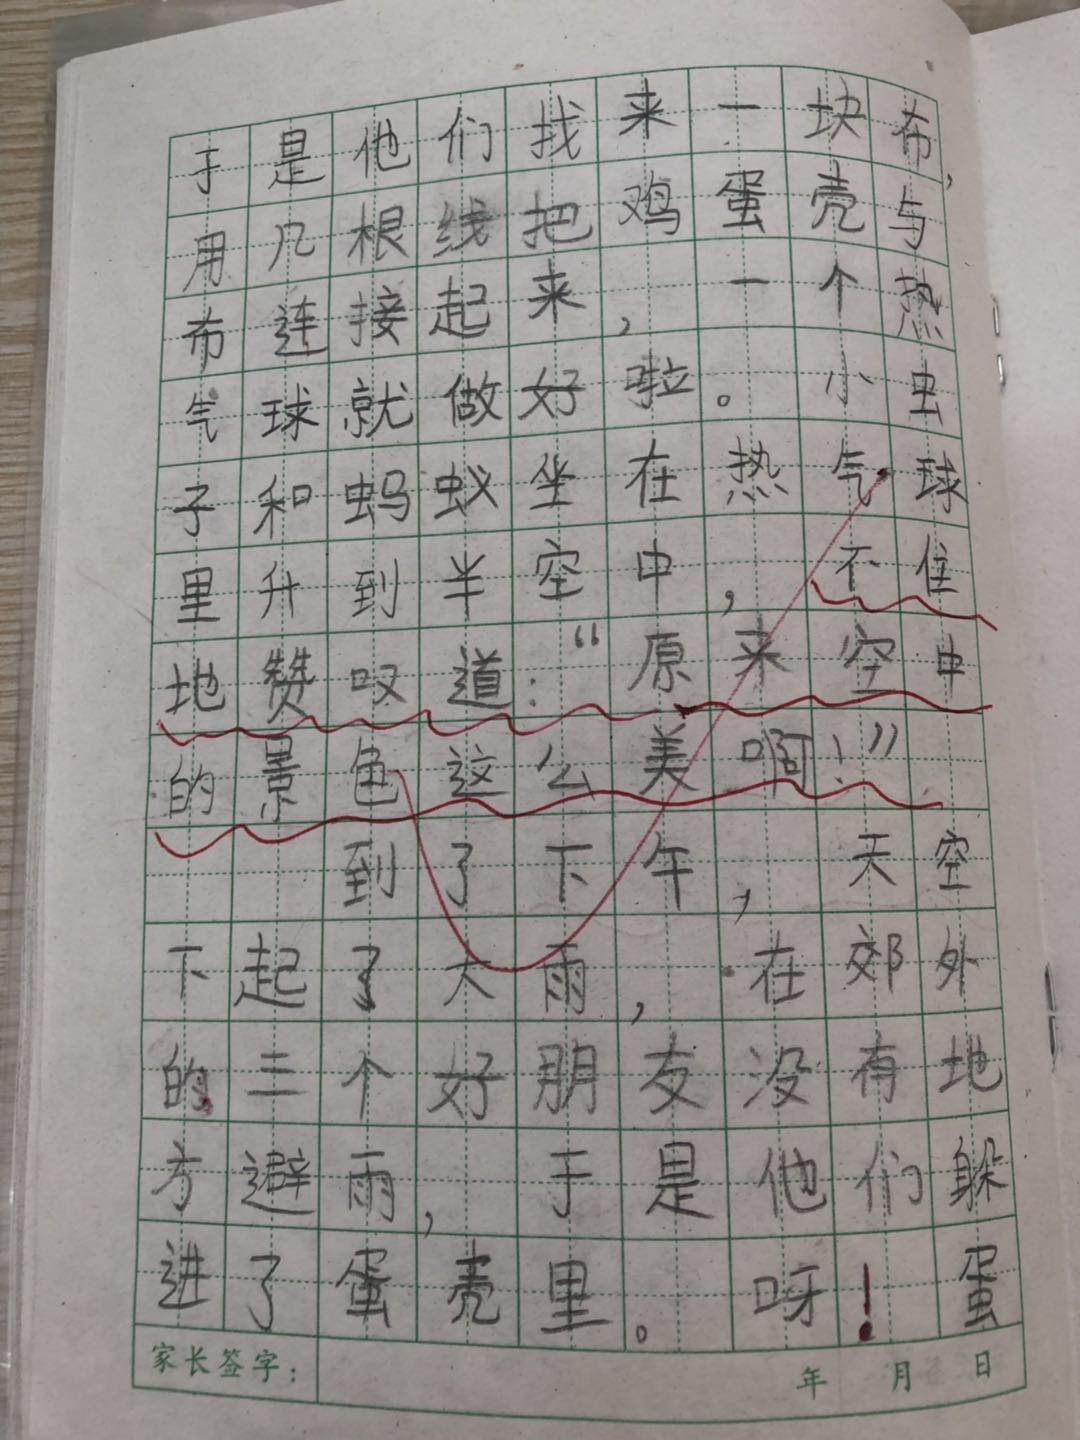 于是他们找来一块布,
用几根线把鸡蛋壳与
布连接起来,一个热
气球就做好啦。小虫
子和蚂蚁坐在热气球
里升到半空中,不住
地赞叹道:“原来空中
的景色这么美啊!”
到了下午,天空
下起了大雨,在郊外
的三个好朋友没有地
方避雨,于是他们躲
进了蛋壳里。呀!蛋
家长签字: 年 月 日